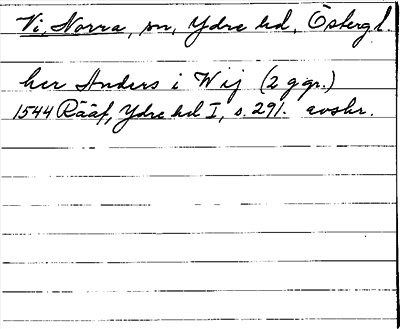 Vi, Norra, sn, Ydre hd, Östergl.
her Anders i Wij (2 ggr.)
1544 Rääf, Ydre hd I, s. 291. avskr.